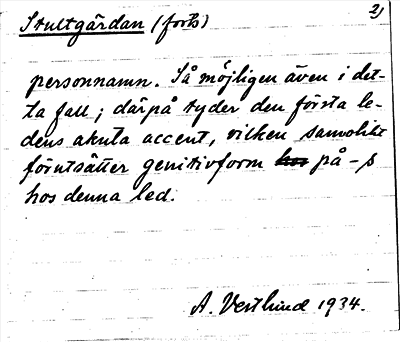 Stultgärdan (forts) 2)
personnamn. Så möjligen även i det-
ta fall; därpå tyder den första le-
dens akuta accent, vilken sannolikt
förutsätter genitivform på -s
hos denna led.
A. Vestlund 1934.